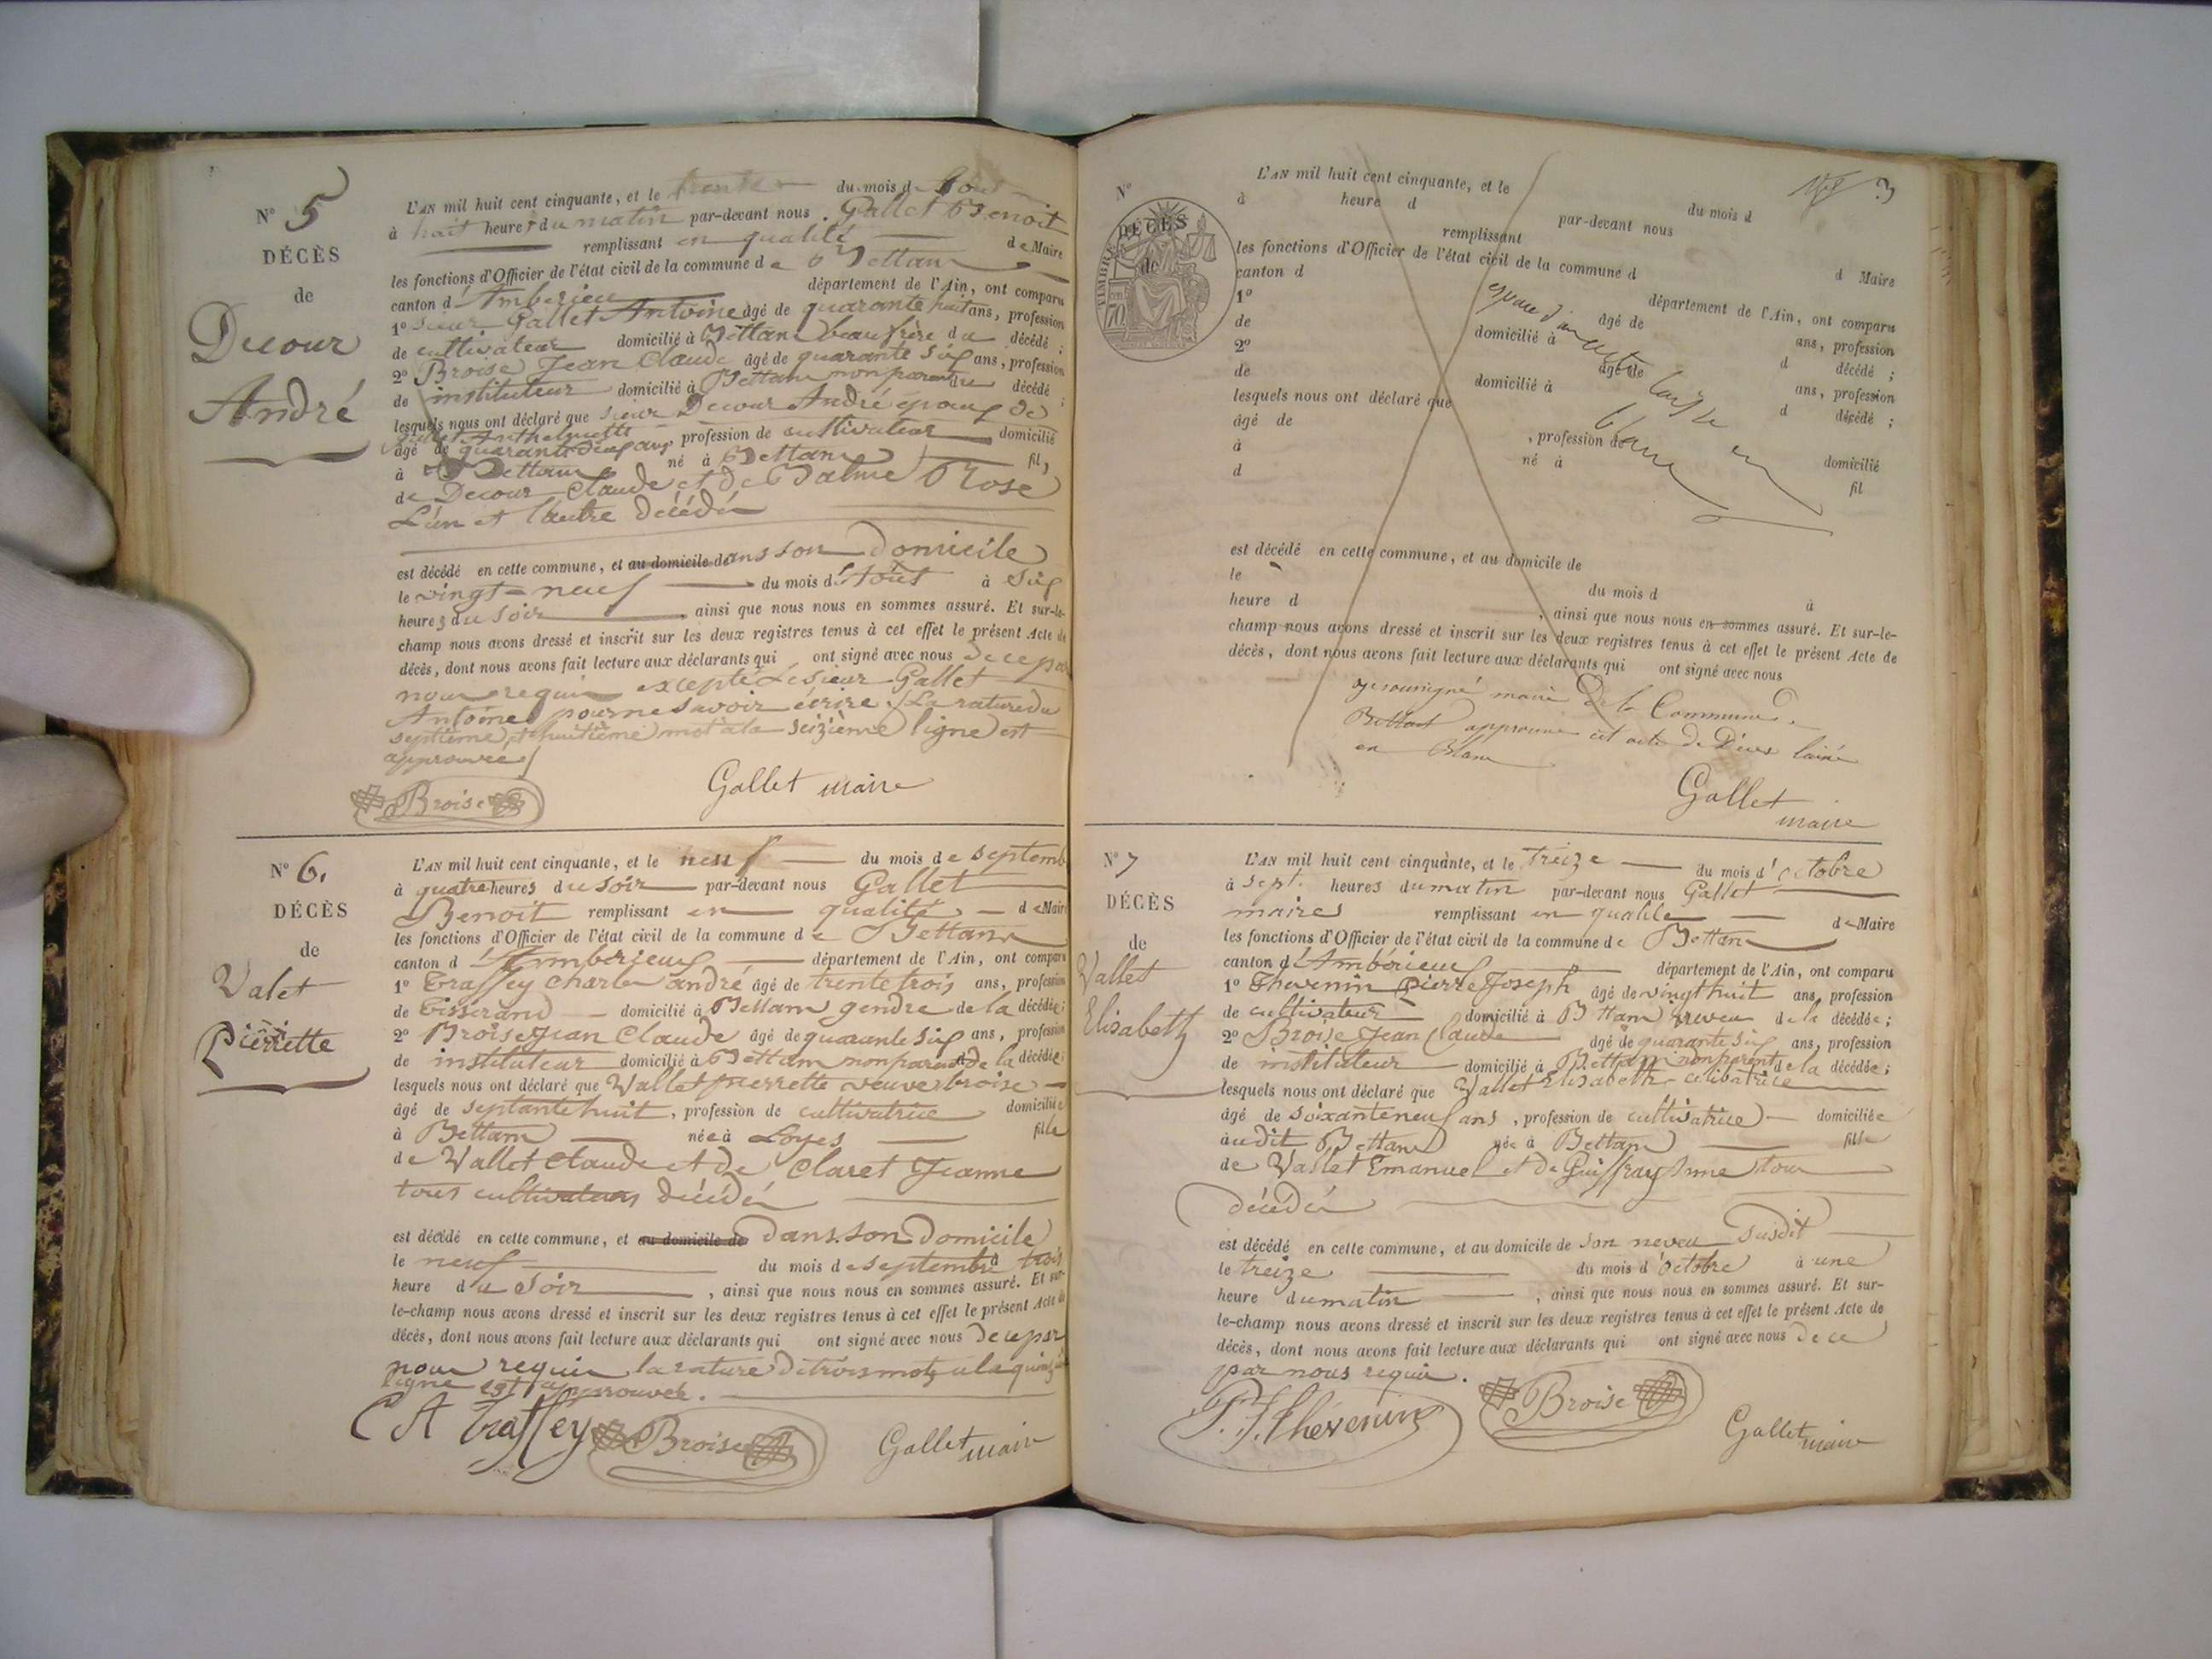 N° 5
DÉCÈS
de
Decour
André
L'AN mil huit cent cinquante, et le trente du mois d'Aout
à huit heures du matin par-devant nous Gallet Benoit
remplissant en qualité de Maire
les fonctions d'Officier de l'état civil de la commune de Bettant
canton d'Amberieu département de l'Ain, ont comparu
1° sieur Gallet Antoine âgé de quarante huit ans, profession
de cultivateur domicilié à Bettant beaufrère du décédé ;
2° Broise Jean Claude âgé de quarante six ans, profession
de instituteur domicilié à Bettant non parent du décédé ;
lesquels nous ont déclaré que sieur Decour André époux de
Gallet Anthelmette
âgé de quarante deux ans profession de cultivateur domicilié
à Bettant né à Bettant fils
de Decour Claude et de Balme Rose
L'un et l'autre décédés
est décédé en cette commune, et au domicile de dans son Domicile
le vingt-neuf du mois d'Aout à six
heures du soir ainsi que nous nous en sommes assuré. Et sur-le-
champ nous avons dressé et inscrit sur les deux registres tenus à cet effet le présent Acte de
décès, dont nous avons fait lecture aux déclarants qui ont signé avec nous de ce par
nous requis excepté le sieur Gallet
Antoine pour ne savoir écrire. (La rature du
septième et huitième mot à la seizième ligne est
approuvée)
Broise
Gallet maire
N° 6.
DÉCÈS
de
Valet
Pierrette
L'AN mil huit cent cinquante, et le neuf du mois de septemb
à quatre heures du soir par-devant nous Gallet
Benoit remplissant en qualité de Maire
les fonctions d'Officier de l'état civil de la commune de Bettant
canton d'Amberieux département de l'Ain, ont comparu
1° Traffey Charle andré âgé de trente trois ans, profession
de Tisserand domicilié à Bettant gendre de la décédée ;
2° Broise Jean Claude âgé de quarante six ans, profession
de instituteur domicilié à Bettant non parent de la décédée ;
lesquels nous ont déclaré que Vallet pierrette veuve broise
âgé de septante huit, profession de cultivatrice domiciliée
à Bettant née à Loyes fille
de Vallet Claude et de Claret Jeanne
tous cultivateurs décédés
est décédé en cette commune, et au domicile de Dans son Domicile
le neuf du mois de septembre à trois
heure du Soir, ainsi que nous nous en sommes assuré. Et sur-
le-champ nous avons dressé et inscrit sur les deux registres tenus à cet effet le présent Acte de
décès, dont nous avons fait lecture aux déclarants qui ont signé avec nous de ce par
nous requis la rature de trois mots à la quinzième
ligne est approuvée.
C A Traffey Broise Gallet maire
3
TIMBRE
DÉCÈS
de
70
N°
L'AN mil huit cent cinquante, et le du mois d
à heure d par-devant nous
remplissant d Maire
les fonctions d'Officier de l'état civil de la commune d
canton d département de l'Ain, ont comparu
1° âgé de ans, profession
de domicilié à d décédé ;
2° âgé de ans, profession
de domicilié à d décédé ;
lesquels nous ont déclaré que
âgé de , profession de domicilié
à né à fil
d
espace d'un acte laissé en
blanc
est décédé en cette commune, et au domicile de
le du mois d à
heure d , ainsi que nous nous en sommes assuré. Et sur-le-
champ nous avons dressé et inscrit sur les deux registres tenus à cet effet le présent Acte de
décès, dont nous avons fait lecture aux déclarants qui ont signé avec nous
je soussigné maire de la Commune de
Bettant approuve cet acte de Décès laissé
en Blanc
Gallet
maire
N° 7
DÉCÈS
de
Vallet
Elisabeth
L'AN mil huit cent cinquante, et le treize du mois d'octobre
à sept heures du matin par-devant nous Gallet
maire remplissant en qualité de Maire
les fonctions d'Officier de l'état civil de la commune de Bettant
canton d'Ambérieux département de l'Ain, ont comparu
1° Thevenin Pierre Joseph âgé de vingt huit ans, profession
de cultivateur domicilié à Bettant neveu de la décédée ;
2° Broise Jean Claude âgé de quarante six ans, profession
de instituteur domicilié à Bettant non parent de la décédée ;
lesquels nous ont déclaré que Vallet Elisabeth celibatrice
âgé de soixante neuf ans, profession de cultivatrice domiciliée
àudit Bettant née à Bettant fille
de Vallet Emanuel et de Guiffray Anne tous
décédés
est décédé en cette commune, et au domicile de son neveu Susdit
le treize du mois d'octobre à une
heure du matin, ainsi que nous nous en sommes assuré. Et sur-
le-champ nous avons dressé et inscrit sur les deux registres tenus à cet effet le présent Acte de
décès, dont nous avons fait lecture aux déclarants qui ont signé avec nous de ce
par nous requis.
P. J. Thévenin Broise Gallet maire